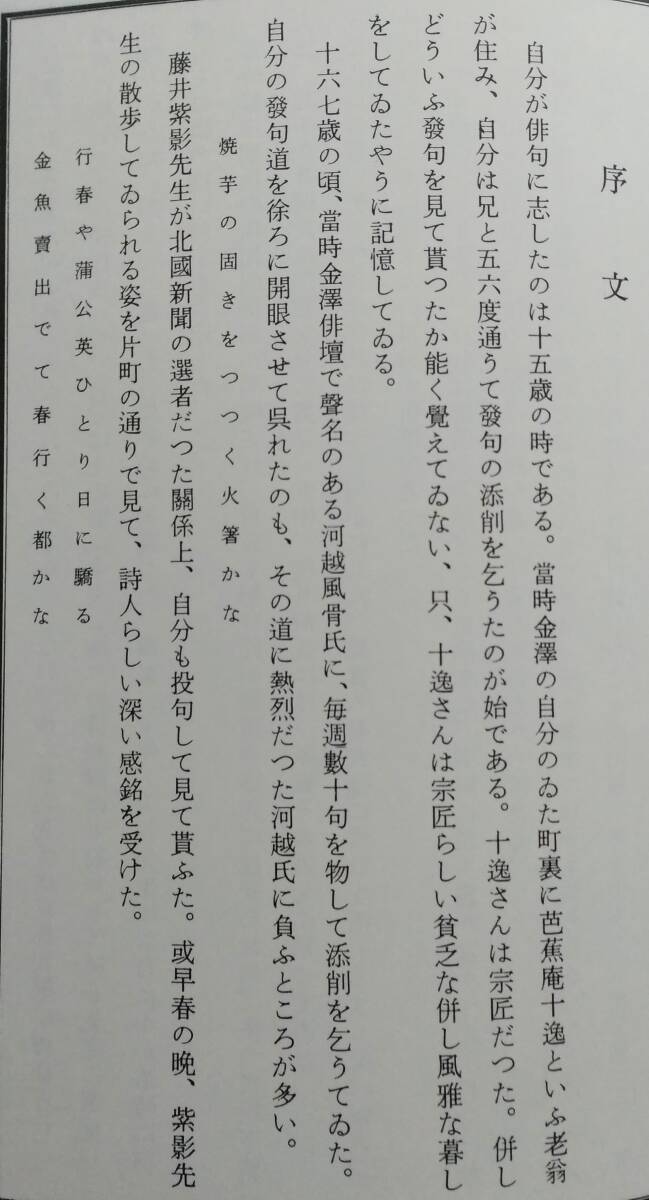 序文
自分が俳句に志したのは十五歳の時である。當時金澤の自分のゐた町裏に芭蕉庵十逸といふ老翁
が住み、自分は兄と五六度通うて發句の添削を乞うたのが始である。十逸さんは宗匠だつた。併し
どういふ發句を見て貰つたか能く覺えてゐない、只、十逸さんは宗匠らしい貧乏な併し風雅な暮し
をしてゐたやうに記憶してゐる。
十六七歳の頃、當時金澤俳壇で聲名のある河越風骨氏に、毎週數十句を物して添削を乞うてゐた。
自分の發句道を徐ろに開眼させて呉れたのも、その道に熱烈だつた河越氏に負ふところが多い。
焼芋の固きをつつく火箸かな
藤井紫影先生が北國新聞の選者だつた關係上、自分も投句して見て貰ふた。或早春の晩、紫影先
生の散歩してゐられる姿を片町の通りで見て、詩人らしい深い感銘を受けた。
行春や蒲公英ひとり日に驕る
金魚賣出でて春行く都かな